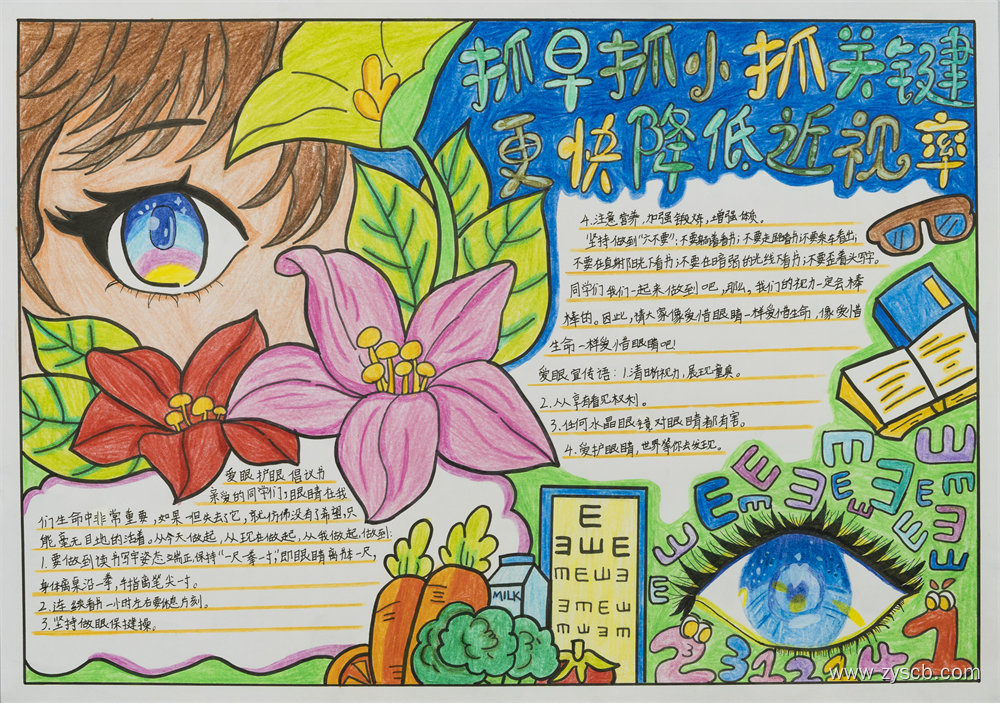 抓早抓小抓关键
更快降低近视率
爱眼护眼倡议书
亲爱的同学们，眼睛在我
们生命中非常重要，如果一但失去了它，就仿佛没有了希望，只
能毫无目地的活着。从今天做起，从现在做起，从我做起，做到：
1.要做到读书写字姿态端正，保持“一尺一拳一寸”，即眼睛离书一尺，
身体离桌沿一拳，手指离笔尖一寸。
2.连续看书一小时左右要休息片刻。
3.坚持做眼保健操。
4.注意营养，加强锻炼，增强体质。
坚持做到“六不要”：不要躺着看书；不要走路看书；不要乘车看书；
不要在直射阳光下看书；不要在暗弱的光线下看书；不要歪着头写字。
同学们我们一起来做到吧，那么，我们的视力一定会棒
棒的。因此，请大家像爱惜眼睛一样爱惜生命，像爱惜
生命一样爱惜眼睛吧！
爱眼宣传语：1.清晰视力，展现童真。
2.人人享有看见权利。
3.任何水晶眼镜对眼睛都有害。
4.爱护眼睛，世界等你去发现。
MILK
E
ЗШE
mEШЗ
2 3 1 2 2 1 4 1
www.zyscb.com